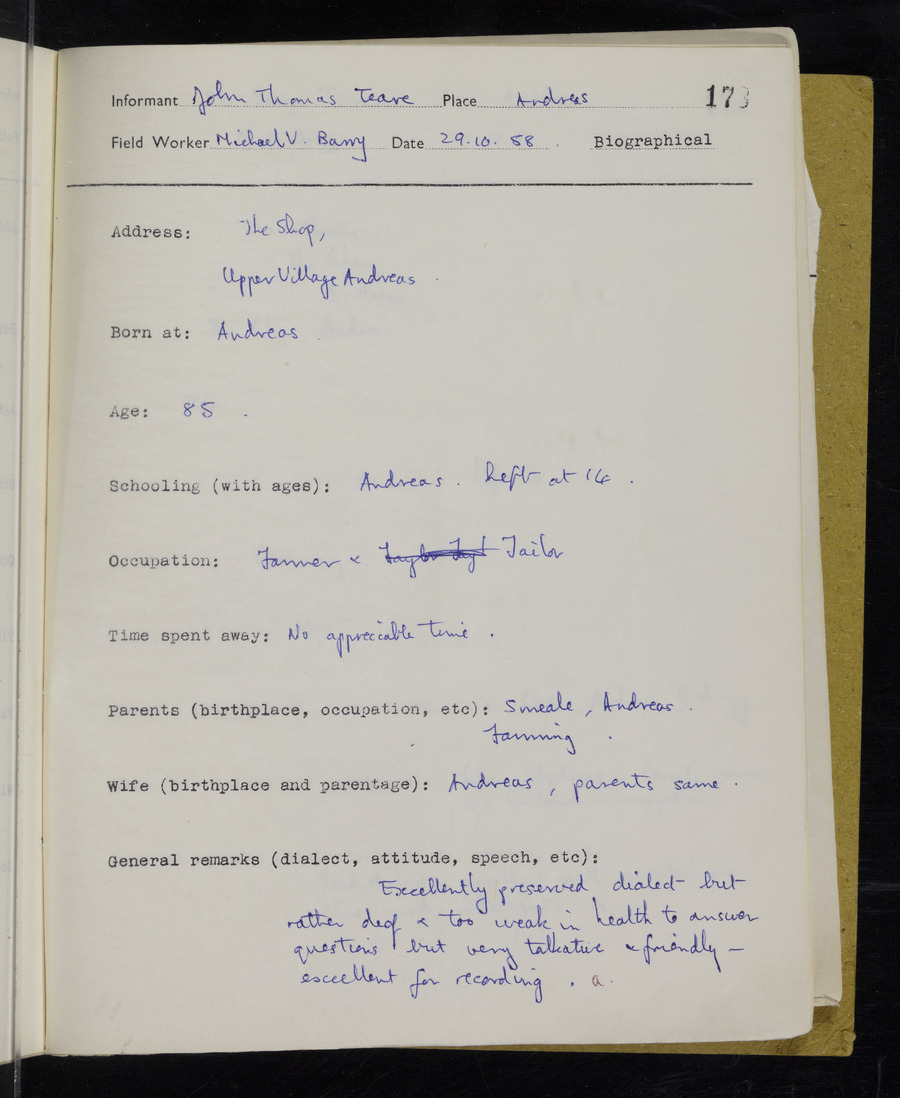 Informant John Thomas Teare Place Andreas 173
Field Worker Michael V. Barry Date 29.10.58. Biographical
Address: The Shop,
Upper Village Andreas.
Born at: Andreas.
Age: 85.
Schooling (with ages): Andreas. Left at 14.
Occupation: Farmer & Tailor
Time spent away: No appreciable time.
Parents (birthplace, occupation, etc): Smeale, Andreas.
Farming.
Wife (birthplace and parentage): Andreas, parents same.
General remarks (dialect, attitude, speech, etc):
Excellently preserved dialect but
rather deaf & too weak in health to answer
questions but very talkative & friendly —
excellent for recording. a.